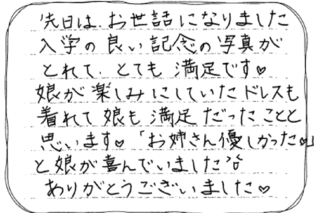 先日は、お世話になりました
入学の良い記念の写真が
とれて、とても満足です♥
娘が楽しみにしていたドレスも
着れて娘も満足だったことと
思います♥「お姉さん優しかった♥」
と娘が喜んでいました
ありがとうございました♥